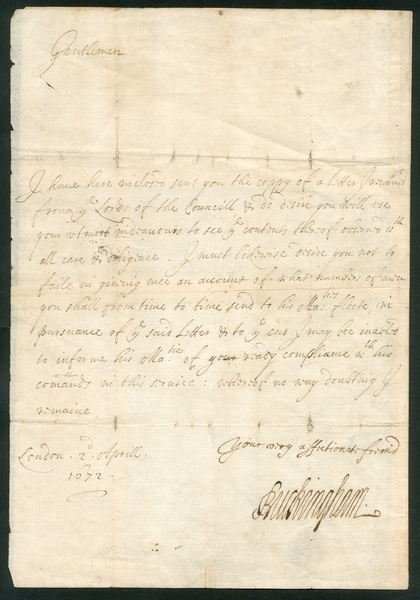 Gentlemen
I have here inclosed sent you the copy of a Letter I received
from ye Lords of the Councill & do desire you will use
your utmost indeavours to see ye contents thereof observed wth
all care & diligence. I must likewise desire you not to
faile in giveing mee an account of what numbers of men
you shall from time to time send to his Matties fleete in
pursuance of ye said Letter & to ye end I may be inabled
to informe his Matie of your ready compliance wth his
comands in this service: whereof no way doubting I
remaine
Your very affectionate friend
London. 2d. Aprill.
1672.
Buckingham.